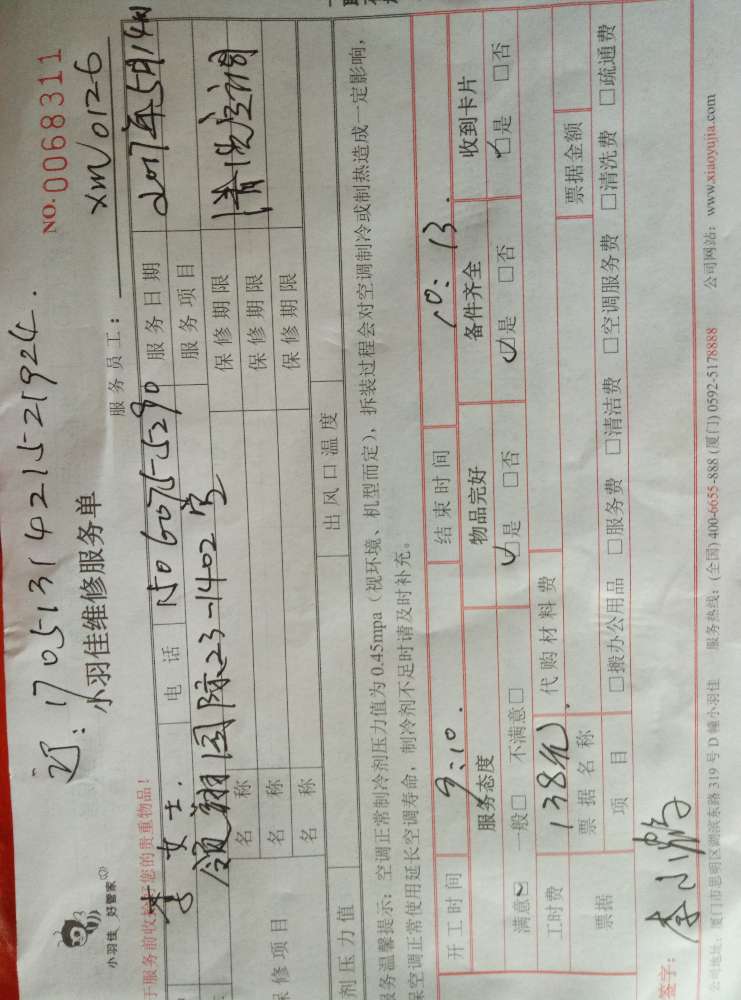 订：170513142152l924.
NO.0068311
小羽佳 好管家
小羽佳维修服务单
服务员工：xmw0126
于服务前收拾好您的贵重物品！
李女士. 电话 15060755290 服务日期 2017年5月14日
领翔国际23-1402室 服务项目 清洗空调
保修项目 名称 保修期限
名称 保修期限
名称 保修期限
剂压力值 出风口温度
服务温馨提示：空调正常制冷剂压力值为 0.45mpa（视环境、机型而定），拆装过程会对空调制冷或制热造成一定影响，
保空调正常使用延长空调寿命，制冷剂不足时请及时补充。
开工时间 9:10. 结束时间 10:13.
服务态度 物品完好 备件齐全 收到卡片
满意☑ 一般□ 不满意□ ☑是 □否 ☑是 □否 ☑是 □否
工时费 138元. 代购材料费
票据 票据名称 票据金额
项目 □搬办公用品 □服务费 □清洁费 □空调服务费 □清洗费 □疏通费
签字：李小鹅
公司地址：厦门市思明区湖滨东路 319 号 D 幢小羽佳 服务热线：(全国) 400-6655-888 (厦门) 0592-5178888 公司网站：www.xiaoyujia.com